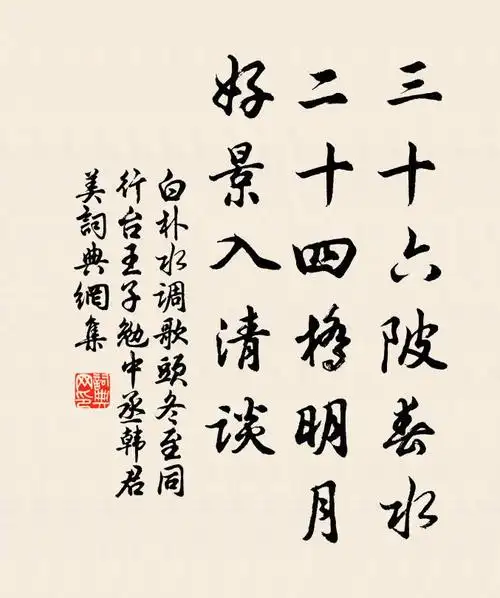 三十六陂春水
二十四橋明月
好景入清談
白朴水调歌頭冬至同
行台王子勉中丞韩君
美詞典網集
詞典网印